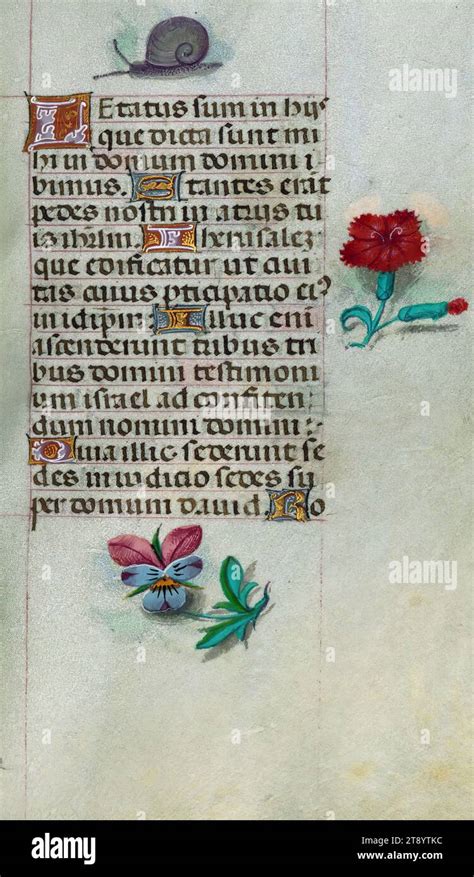 LEtatus sum in hijs
que dicta sunt mi
hi in domum domini i
bimus. Stantes erāt
pedes nostri in atrijs tu
is ihrlm. Iherusalez
que edificatur ut ciui
tas cuius pticipatio eiꝰ
in idipm. Illuc eni
ascenderunt tribus tri
bus domini testimoni
um israel ad confiten
dum nomini domini :
Quia illic sederunt se
des in iudicio sedes su
per domum dauid. Ro
alamy
alamy
alamy
alamy
Image ID: 2T8YTKC
www.alamy.com